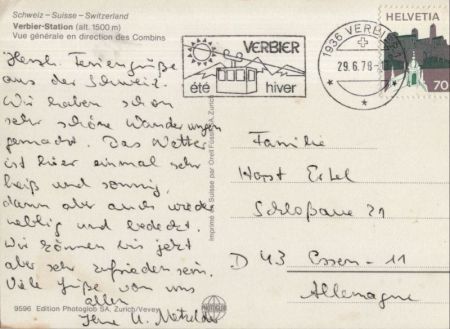 Schweiz – Suisse – Switzerland
Verbier-Station (alt. 1500 m)
Vue générale en direction des Combins
Herzl. Feriengrüße
aus der Schweiz.
Wir haben schon
sehr schöne Wanderungen
gemacht. Das Wetter
ist hier einmal sehr
heiß und sonnig,
dann aber auch wieder
neblig und bedeckt.
Wir können bis jetzt
aber sehr zufrieden sein.
Viele Grüße von uns
allen
Ihre U.
9596 Edition Photoglob SA, Zurich/Vevey
Imprimé en Suisse par Orell Füssli SA, Zurich
VERBIER
été hiver
1936 VERBIER
29.6.76
HELVETIA
70
Familie
Horst Ertel
Schloßaue 21
D 43 Essen - 11
Allemagne